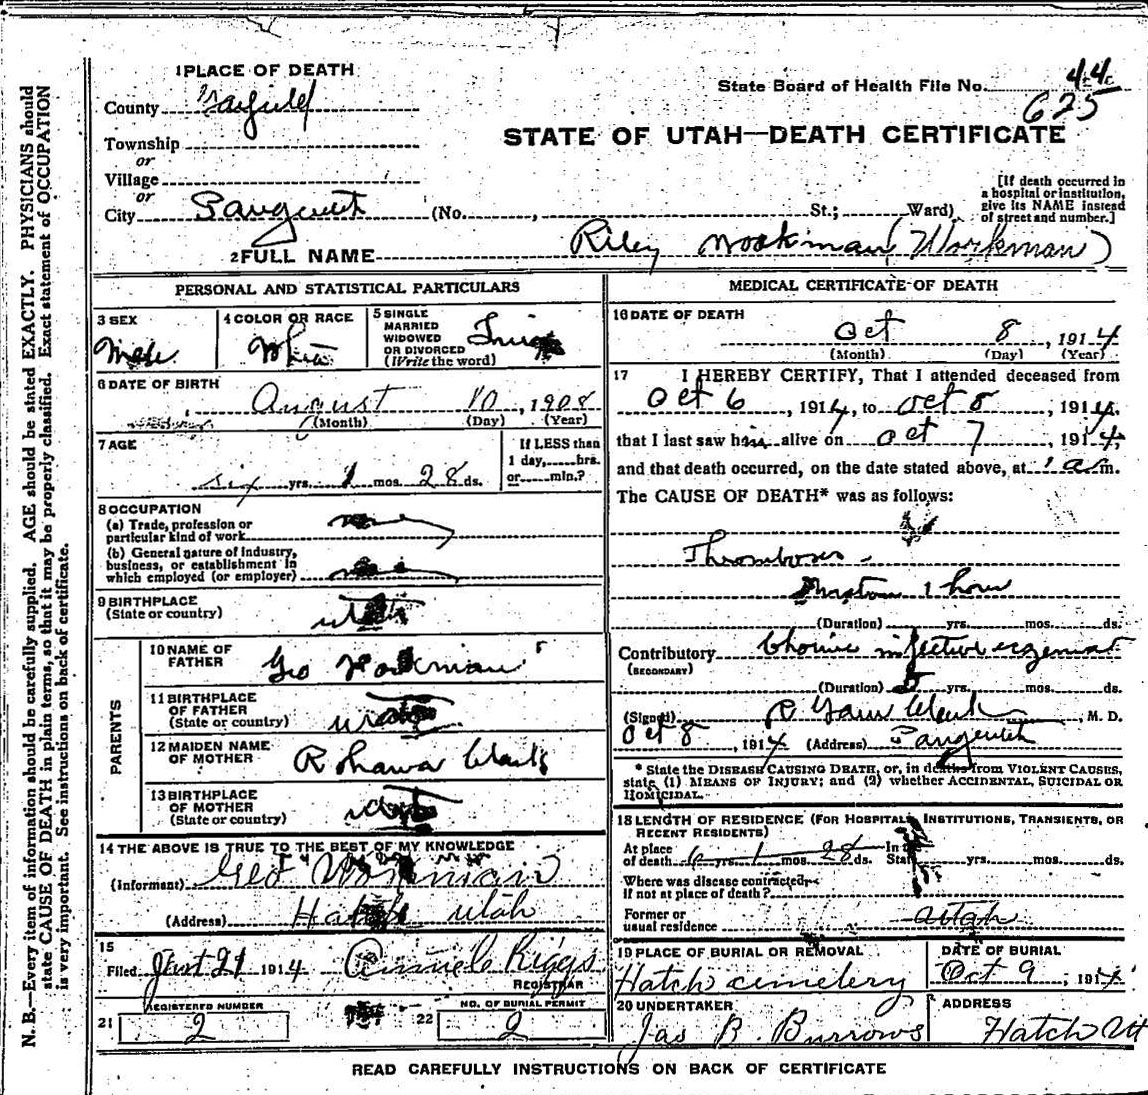 N. B.—Every item of information should be carefully supplied. AGE should be stated EXACTLY. PHYSICIANS should
state CAUSE OF DEATH in plain terms, so that it may be properly classified. Exact statement of OCCUPATION
is very important. See instructions on back of certificate.
1 PLACE OF DEATH
County Garfield
Township
or
Village
or
City Panguitch (No. , St.; Ward)
State Board of Health File No. 44
625
STATE OF UTAH—DEATH CERTIFICATE
[If death occurred in
a hospital or institution,
give its NAME instead
of street and number.]
2 FULL NAME Riley Wookman (Workman)
PERSONAL AND STATISTICAL PARTICULARS
3 SEX Male
4 COLOR OR RACE White
5 SINGLE
MARRIED
WIDOWED
OR DIVORCED
(Write the word)
6 DATE OF BIRTH
August 10, 1908
(Month) (Day) (Year)
7 AGE
six yrs. 1 mos. 28 ds.
If LESS than
1 day, hrs.
or min.?
8 OCCUPATION
(a) Trade, profession or
particular kind of work
(b) General nature of industry,
business, or establishment in
which employed (or employer)
9 BIRTHPLACE
(State or country) utah
PARENTS
10 NAME OF
FATHER Geo Workman
11 BIRTHPLACE
OF FATHER
(State or country) utah
12 MAIDEN NAME
OF MOTHER Clark
13 BIRTHPLACE
OF MOTHER
(State or country) utah
14 THE ABOVE IS TRUE TO THE BEST OF MY KNOWLEDGE
(Informant) Geo Workman
(Address) Hatch Utah
15
Filed 21 1914 Riggs
REGISTRAR
21 REGISTERED NUMBER 2
22 NO. OF BURIAL PERMIT 2
MEDICAL CERTIFICATE OF DEATH
16 DATE OF DEATH
Oct 8, 1914
(Month) (Day) (Year)
17 I HEREBY CERTIFY, That I attended deceased from
Oct 6, 1914, to Oct 8, 1914,
that I last saw him alive on Oct 7, 1914,
and that death occurred, on the date stated above, at 1 a.m.
The CAUSE OF DEATH* was as follows:
Thrombosis
Duration 1 hour
(Duration) yrs. mos. ds.
Contributory Chronic infective eczema
(SECONDARY)
(Duration) 5 yrs. mos. ds.
(Signed) R Garn Clark, M. D.
Oct 8, 1914 (Address) Panguitch
* State the DISEASE CAUSING DEATH, or, in deaths from VIOLENT CAUSES,
state (1) MEANS OF INJURY; and (2) whether ACCIDENTAL, SUICIDAL OR
HOMICIDAL.
18 LENGTH OF RESIDENCE (FOR HOSPITALS, INSTITUTIONS, TRANSIENTS, OR
RECENT RESIDENTS)
At place
of death 6 yrs. 1 mos. 28 ds. In the State yrs. mos. ds.
Where was disease contracted,
if not at place of death?
Former or
usual residence utah
19 PLACE OF BURIAL OR REMOVAL
Hatch cemetery
DATE OF BURIAL
Oct 9, 1914
20 UNDERTAKER
Jas B. Burrows
ADDRESS
Hatch Ut
READ CAREFULLY INSTRUCTIONS ON BACK OF CERTIFICATE